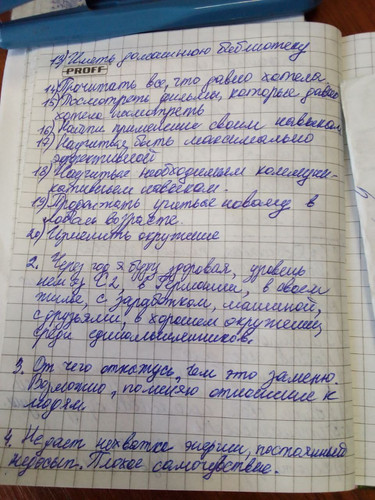 13) Иметь домашнюю библиотеку
PROFF
14) Прочитать все, что давно хотела
15) Посмотреть фильмы, которые давно
хотела посмотреть
16) Найти применение своим навыкам
17) Научиться быть максимально
эффективной
18) Научиться необходимым коммуни-
кативным навыкам.
19) Продолжать учиться новому в
любом возрасте.
20) Изменить окружение
2. Через год я буду здоровая, уровень
нем. яз С2, в Германии, в своем
жилье, с заработком, машиной,
с друзьями, в хорошем окружении,
среди единомышленников.
3. От чего откажусь, чем это заменю.
Возможно, поменяю отношение к
людям.
4. Не дает нехватка энергии, постоянный
недосып. Плохое самочувствие.